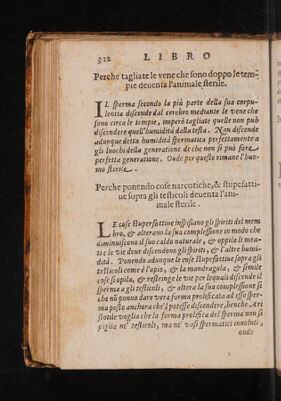 312 LIBRO
Perche tagliate le vene che sono doppo le tem-
pie deventa l'animale sterile.
IL sperma secondo la più parte della sua corpu-
lentia descende dal cerebro mediante le vene che
sono circa le tempie, imperò tagliate quelle non può
discendere quell'humidità dalla testa. Non discende
adunque detta humidità spermatica perfettamente a
gli luochi della generatione de che non si può fare
perfetta generatione. Onde per questo rimane l'huo-
mo sterile.
Perche ponendo cose narcotiche, & stupefatti-
ue sopra gli testicoli deventa l'ani-
male sterile.
LE cose stupefattiue inspissano gli spiriti del mem
bro, & alterano la sua complessione in modo che
diminuiscono il suo caldo naturale, & oppila le mea-
ti e le vie done discendono gli spiriti, & l'altre humi-
dità. Ponendo adunque le cose stupefattiue sopra gli
testicoli come è l'opio, & la mandragola, & simile
cose si opila, & restringe le vie per lequali discende il
sperma agli testicoli, & altera la sua complessione si
che nõ ponno dare vera forma prolificata ad esso sper-
ma posto anchora che'l potesse discendere, benche Ari
stotile voglia che la forma prolifica del sperma non si
piglia ne' testicoli, ma ne' vasi spermatici inuoluti,
onde